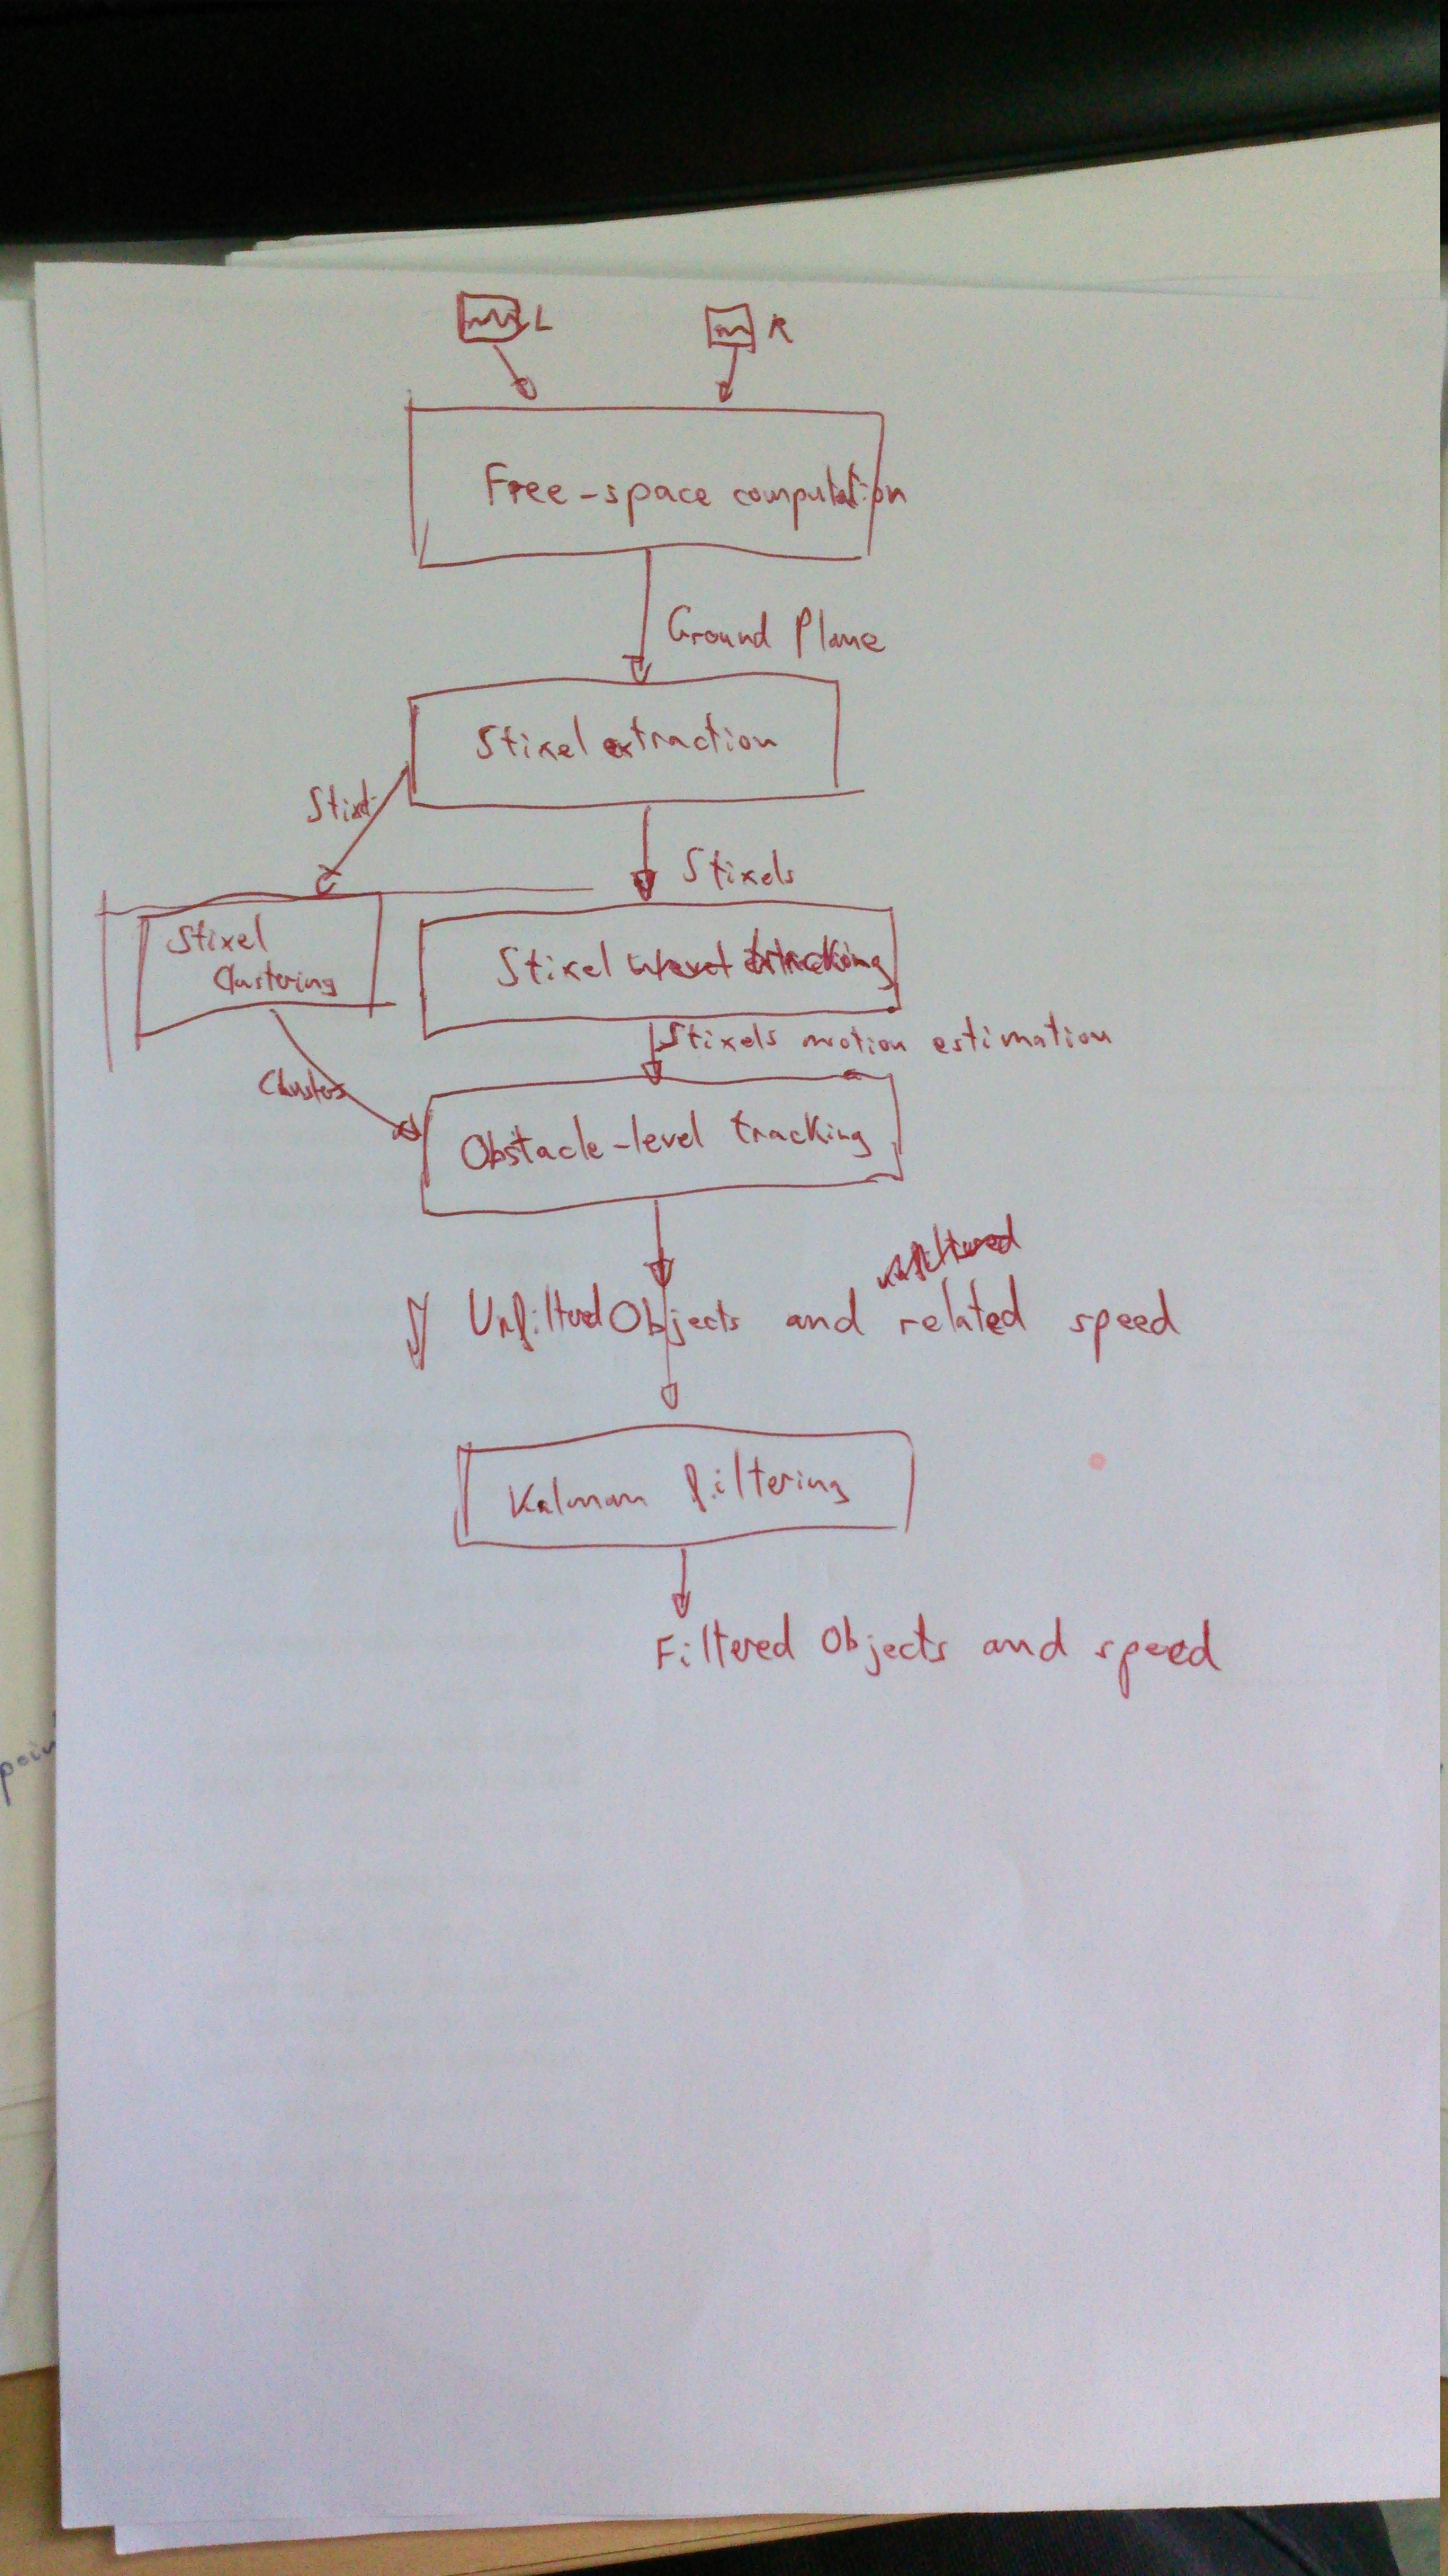 L
R
Free-space computation
Ground Plane
Stixel extraction
Stixels
Stixel
Clustering
Stixel tracking
Stixels motion estimation
Clusters
Obstacle-level tracking
Unfiltered Objects and related speed
Kalman filtering
Filtered Objects and speed